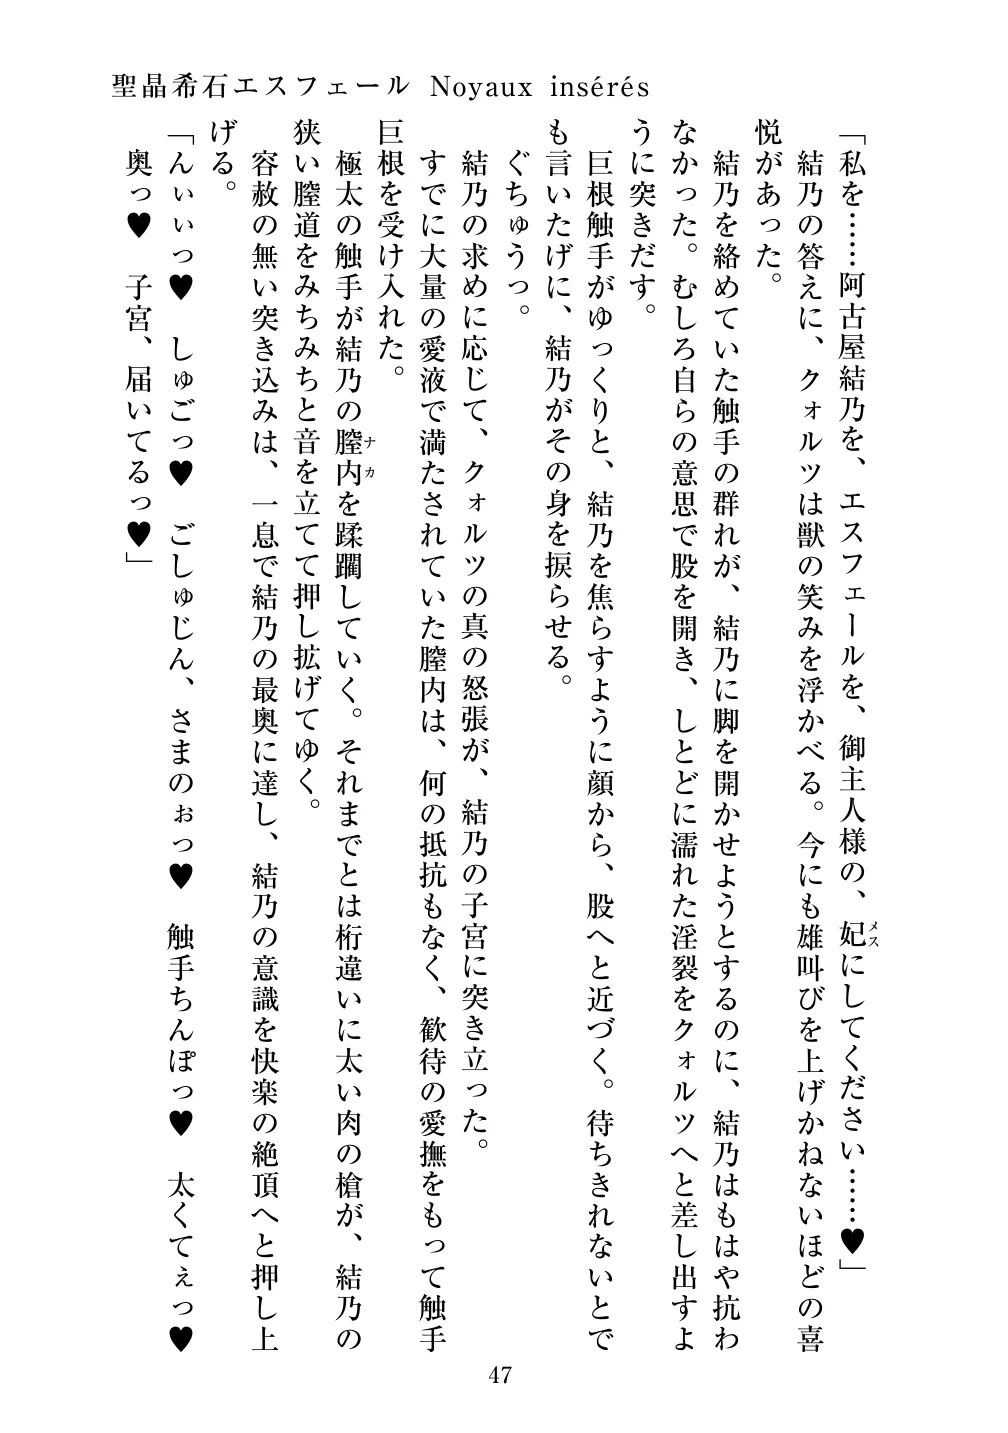 聖晶希石エスフェール Noyaux insérés
「私を……阿古屋結乃を、エスフェールを、御主人様の、妃にしてください……♥」
メス
結乃の答えに、クォルツは獣の笑みを浮かべる。今にも雄叫びを上げかねないほどの喜
悦があった。
結乃を絡めていた触手の群れが、結乃に脚を開かせようとするのに、結乃はもはや抗わ
なかった。むしろ自らの意思で股を開き、しとどに濡れた淫裂をクォルツへと差し出すよ
うに突きだす。
巨根触手がゆっくりと、結乃を焦らすように顔から、股へと近づく。待ちきれないとで
も言いたげに、結乃がその身を捩らせる。
ぐちゅうっ。
結乃の求めに応じて、クォルツの真の怒張が、結乃の子宮に突き立った。
すでに大量の愛液で満たされていた膣内は、何の抵抗もなく、歓待の愛撫をもって触手
巨根を受け入れた。
極太の触手が結乃の膣内を蹂躙していく。それまでとは桁違いに太い肉の槍が、結乃の
ナカ
狭い膣道をみちみちと音を立てて押し拡げてゆく。
容赦の無い突き込みは、一息で結乃の最奥に達し、結乃の意識を快楽の絶頂へと押し上
げる。
「んぃぃっ♥　しゅごっ♥　ごしゅじん、さまのぉっ♥　触手ちんぽっ♥　太くてぇっ♥
奥っ♥　子宮、届いてるっ♥」
47